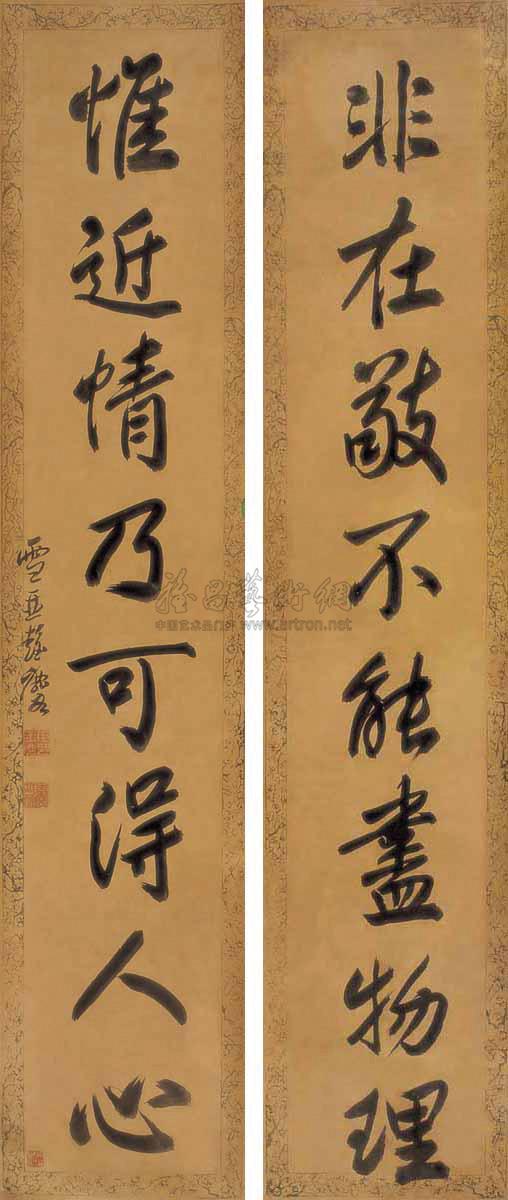 非在敬不能盡物理
惟近情乃可得人心
雅昌藝術網
中国艺术品门户 www.artron.net